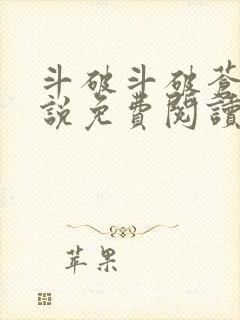 斗破斗破蒼
說免費閱讀
苹果